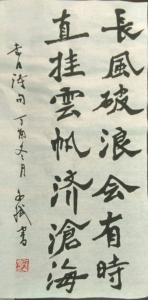 長風破浪会有時
直挂雲帆济滄海
李白诗句 丁酉冬月 书